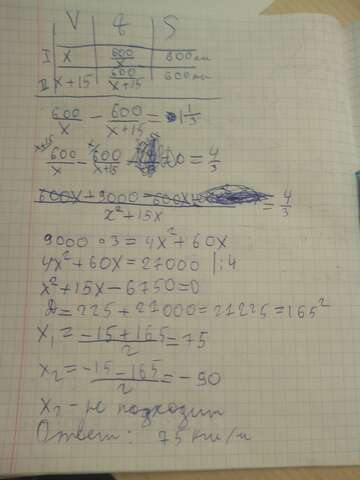 V t S
I x 600/x 600км
II x+15 600/x+15 600км
600/x - 600/x+15 = 1 1/3
x+15 600/x - x 600/x+15 = 4/3
600x + 9000 - 600x / x²+15x = 4/3
9000 · 3 = 4x² + 60x
4x² + 60x = 27000 |:4
x² + 15x - 6750 = 0
D = 225 + 27000 = 27225 = 165²
x₁ = -15+165/2 = 75
x₂ = -15-165/2 = -90
x₂ - не подходит
Ответ: 75 км/ч